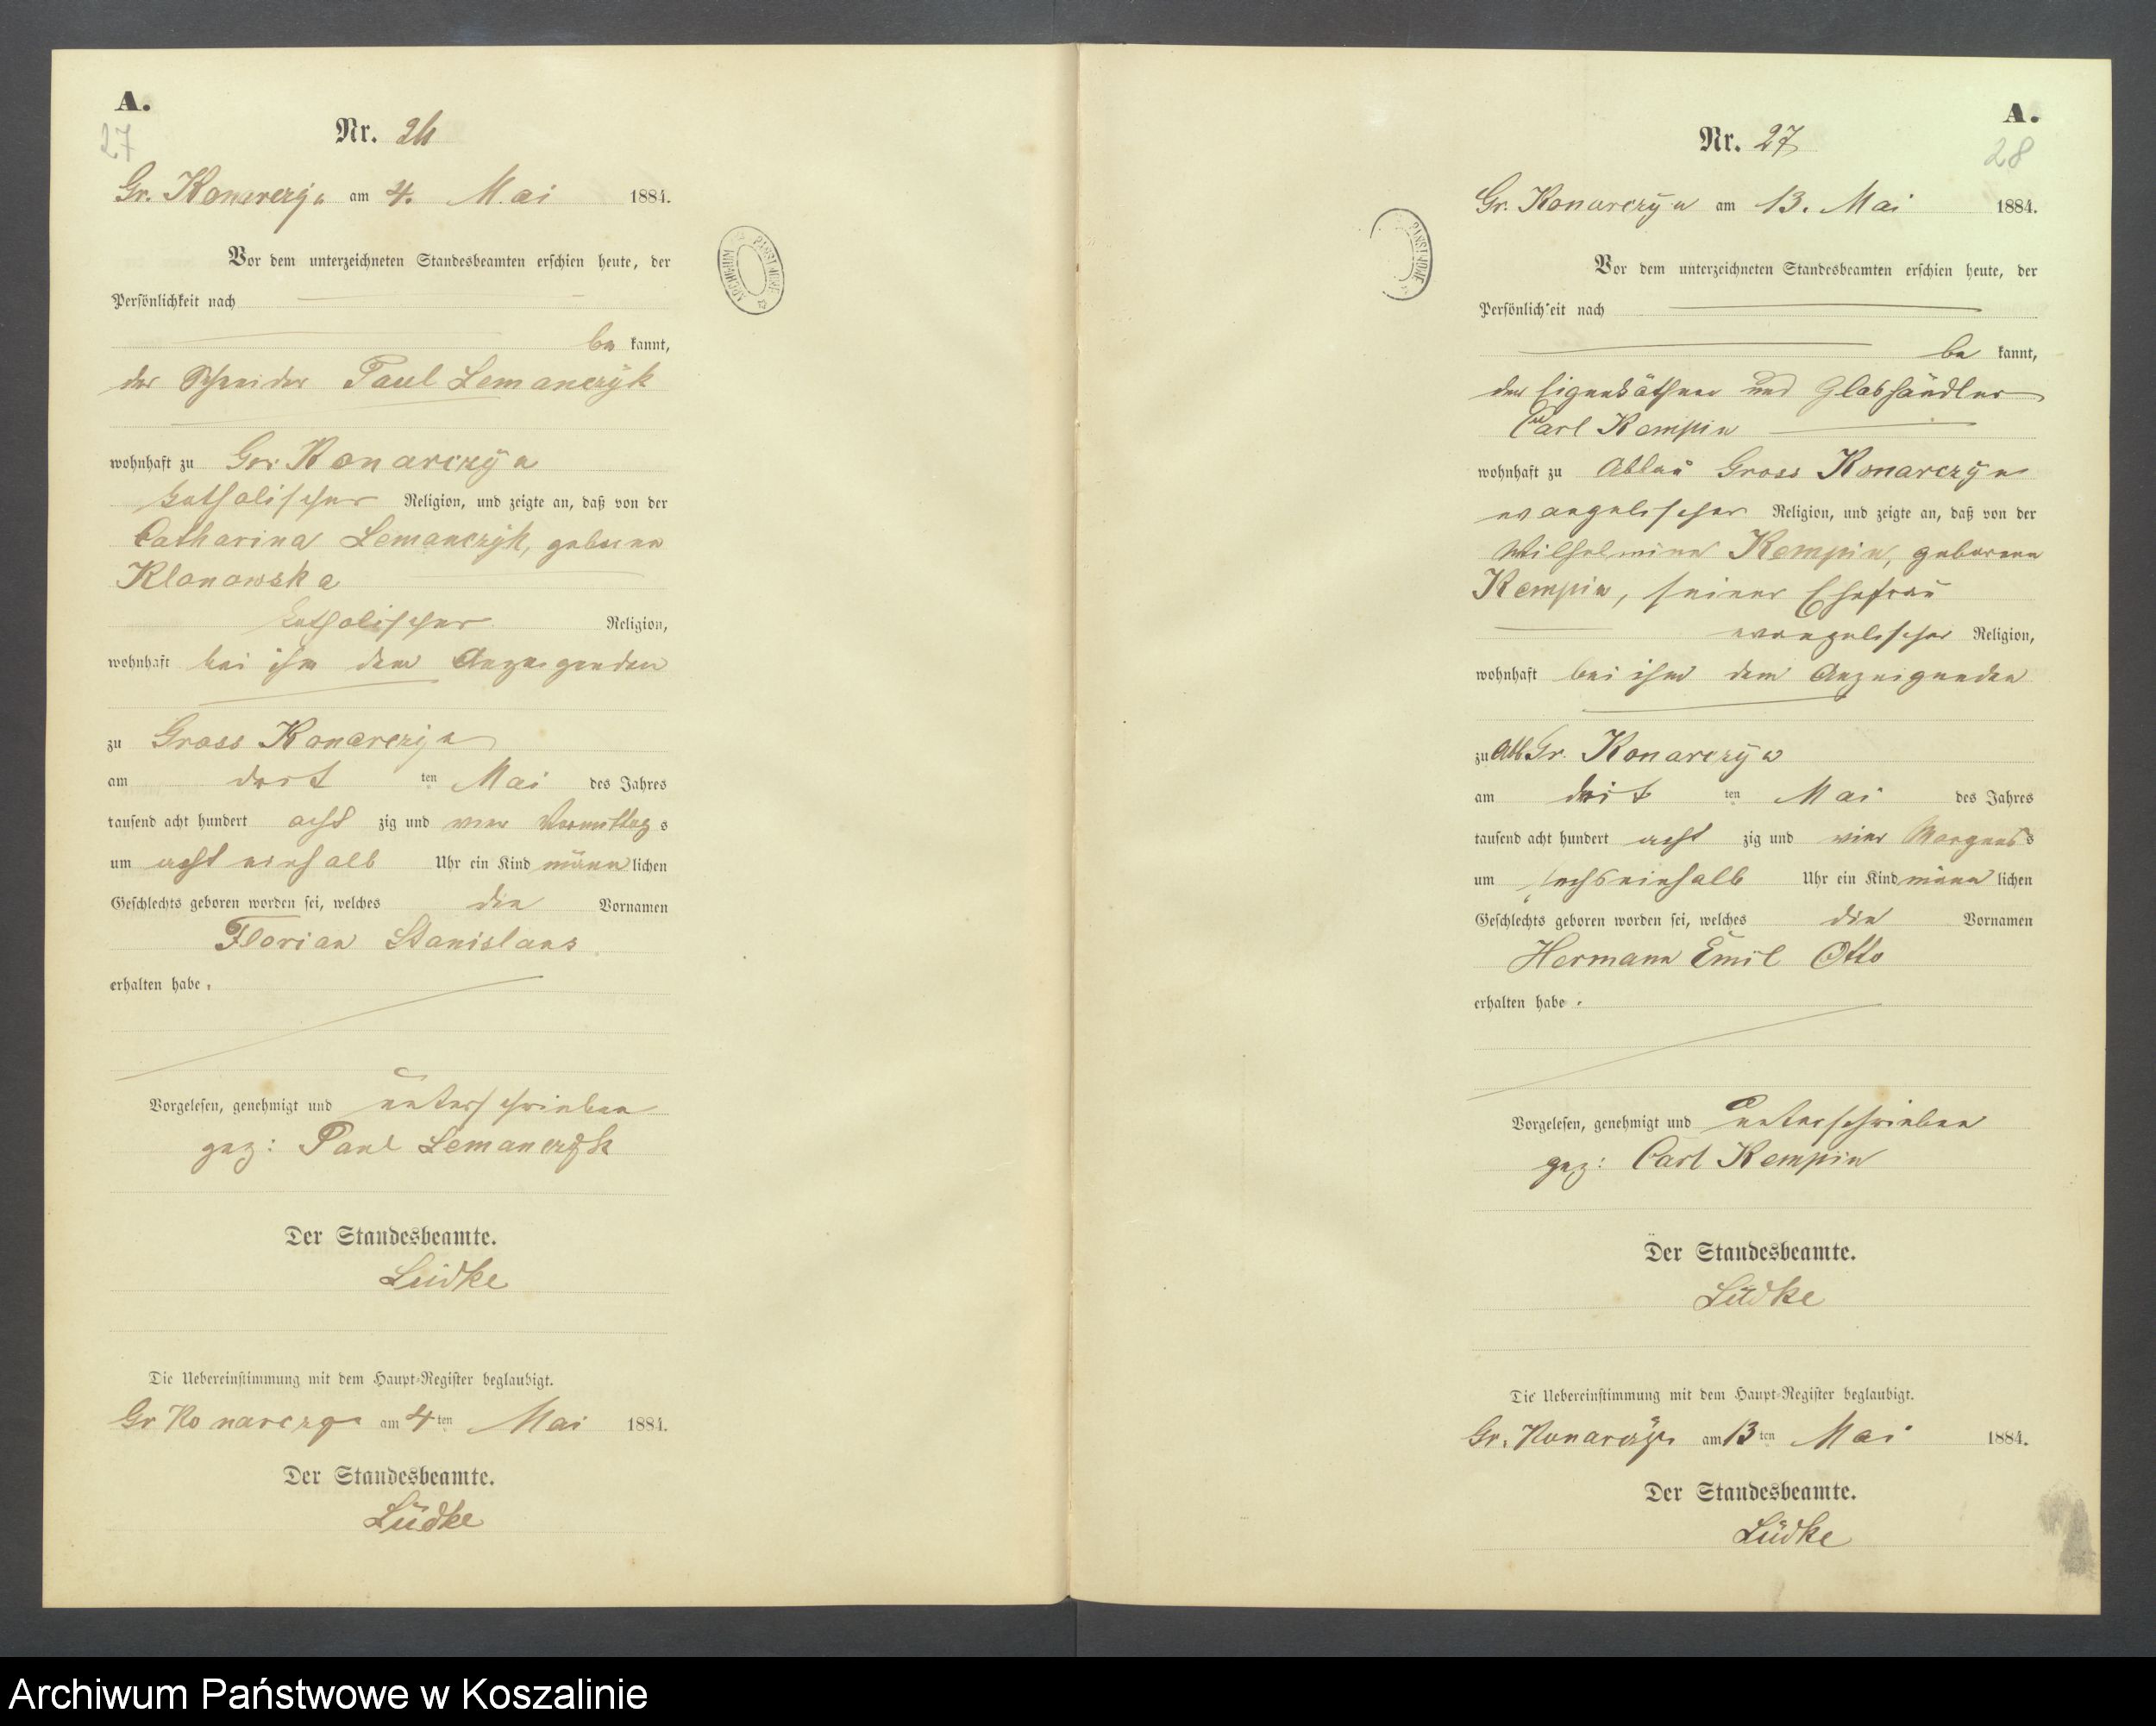 A.
27
Nr. 26
Gr. Konarczyn am 4. Mai 1884.
Vor dem unterzeichneten Standesbeamten erschien heute, der
Persönlichkeit nach
be kannt,
der Schneider Paul Lemanczÿk
wohnhaft zu Gr. Konarczÿn
katholischer Religion, und zeigte an, daß von der
Catharina Lemanczÿk, geborene
Klonowska
katholischer Religion,
wohnhaft bei ihm dem Anzeigenden
zu Gross Konarczyn
am ten Mai des Jahres
tausend acht hundert acht zig und vier Vormittag s
um acht einhalb Uhr ein Kind männ lichen
Geschlechts geboren worden sei, welches die Vornamen
Florian Stanislaus
erhalten habe.
Vorgelesen, genehmigt und unterschrieben
gez: Paul Lemanczyk
Der Standesbeamte.
Lüdke
Die Uebereinstimmung mit dem Haupt-Register beglaubigt.
Gr Konarczyn am 4 ten Mai 1884.
Der Standesbeamte.
Lüdke
A.
28
Nr. 27
Gr. Konarczÿn am 13. Mai 1884.
Vor dem unterzeichneten Standesbeamten erschien heute, der
Persönlichkeit nach
be kannt,
der Eigenkäthner und Glashändler
Carl Kempin
wohnhaft zu Abbau Gross Konarczÿn
evangelischer Religion, und zeigte an, daß von der
Wilhelmine Kempin, geborene
Kempin, seiner Ehefrau
evangelischer Religion,
wohnhaft bei ihm dem Anzeigenden
zu Abb Gr. Konarczÿn
am ten Mai des Jahres
tausend acht hundert acht zig und vier Morgens s
um sechseinhalb Uhr ein Kind männ lichen
Geschlechts geboren worden sei, welches die Vornamen
Hermann Emil Otto
erhalten habe.
Vorgelesen, genehmigt und unterschrieben
gez: Carl Kempin
Der Standesbeamte.
Lüdke
Die Uebereinstimmung mit dem Haupt-Register beglaubigt.
Gr. Konarczÿn am 13 ten Mai 1884.
Der Standesbeamte.
Lüdke
Archiwum Państwowe w Koszalinie